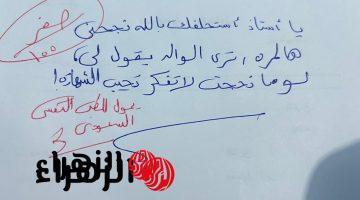 يا أستاذ أستحلفك بالله نجحني
هالمره، ترى الوالد يقول لي،
لو ما نجحت لا تفكر تجيب الشهاده!
صفر
١٠٠
يحول للطب النفسي
السعودي
الزهراء